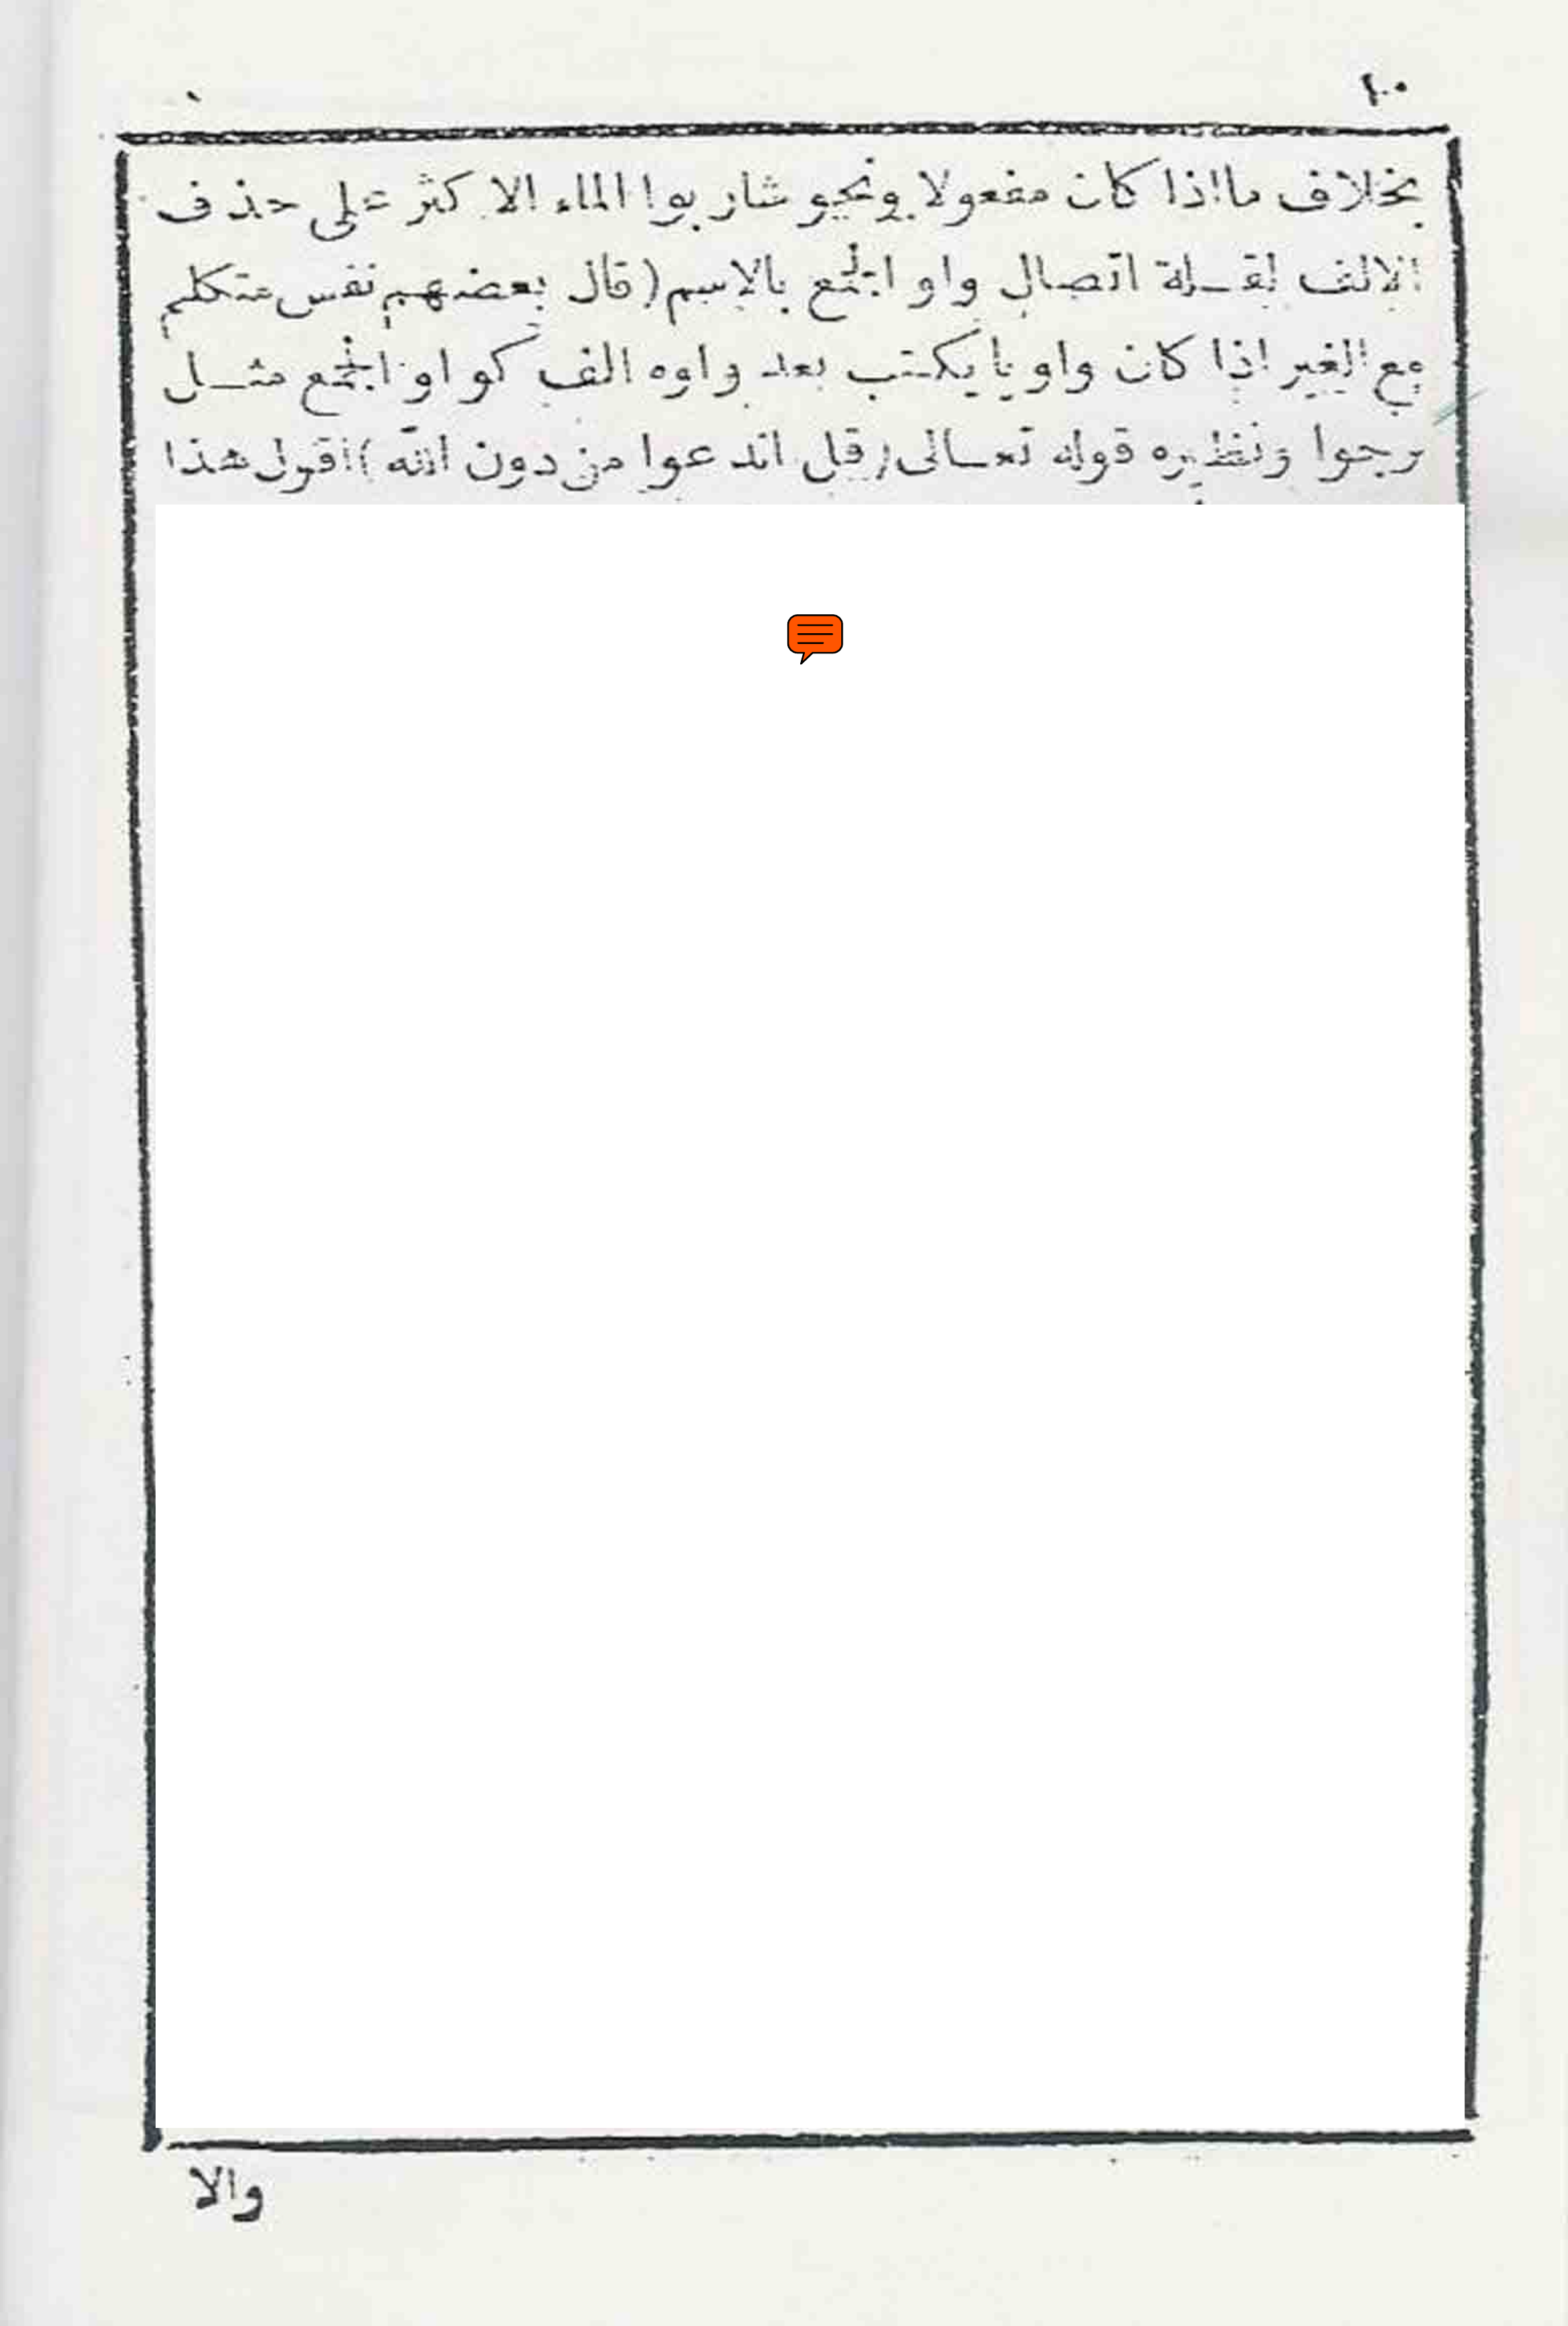 ١٠
بخلاف ما اذا كان مفعولا ونحو شاربوا الماء الاكثر على حذف
الالف لقلة اتصال واو الجمع بالاسم (قال بعضهم نفس متكلم
مع الغير اذا كان واويا يكتب بعد واوه الف كواو الجمع مثل
نرجوا ونظيره قوله تعالى (قل اندعوا من دون الله) اقول هذا
والا